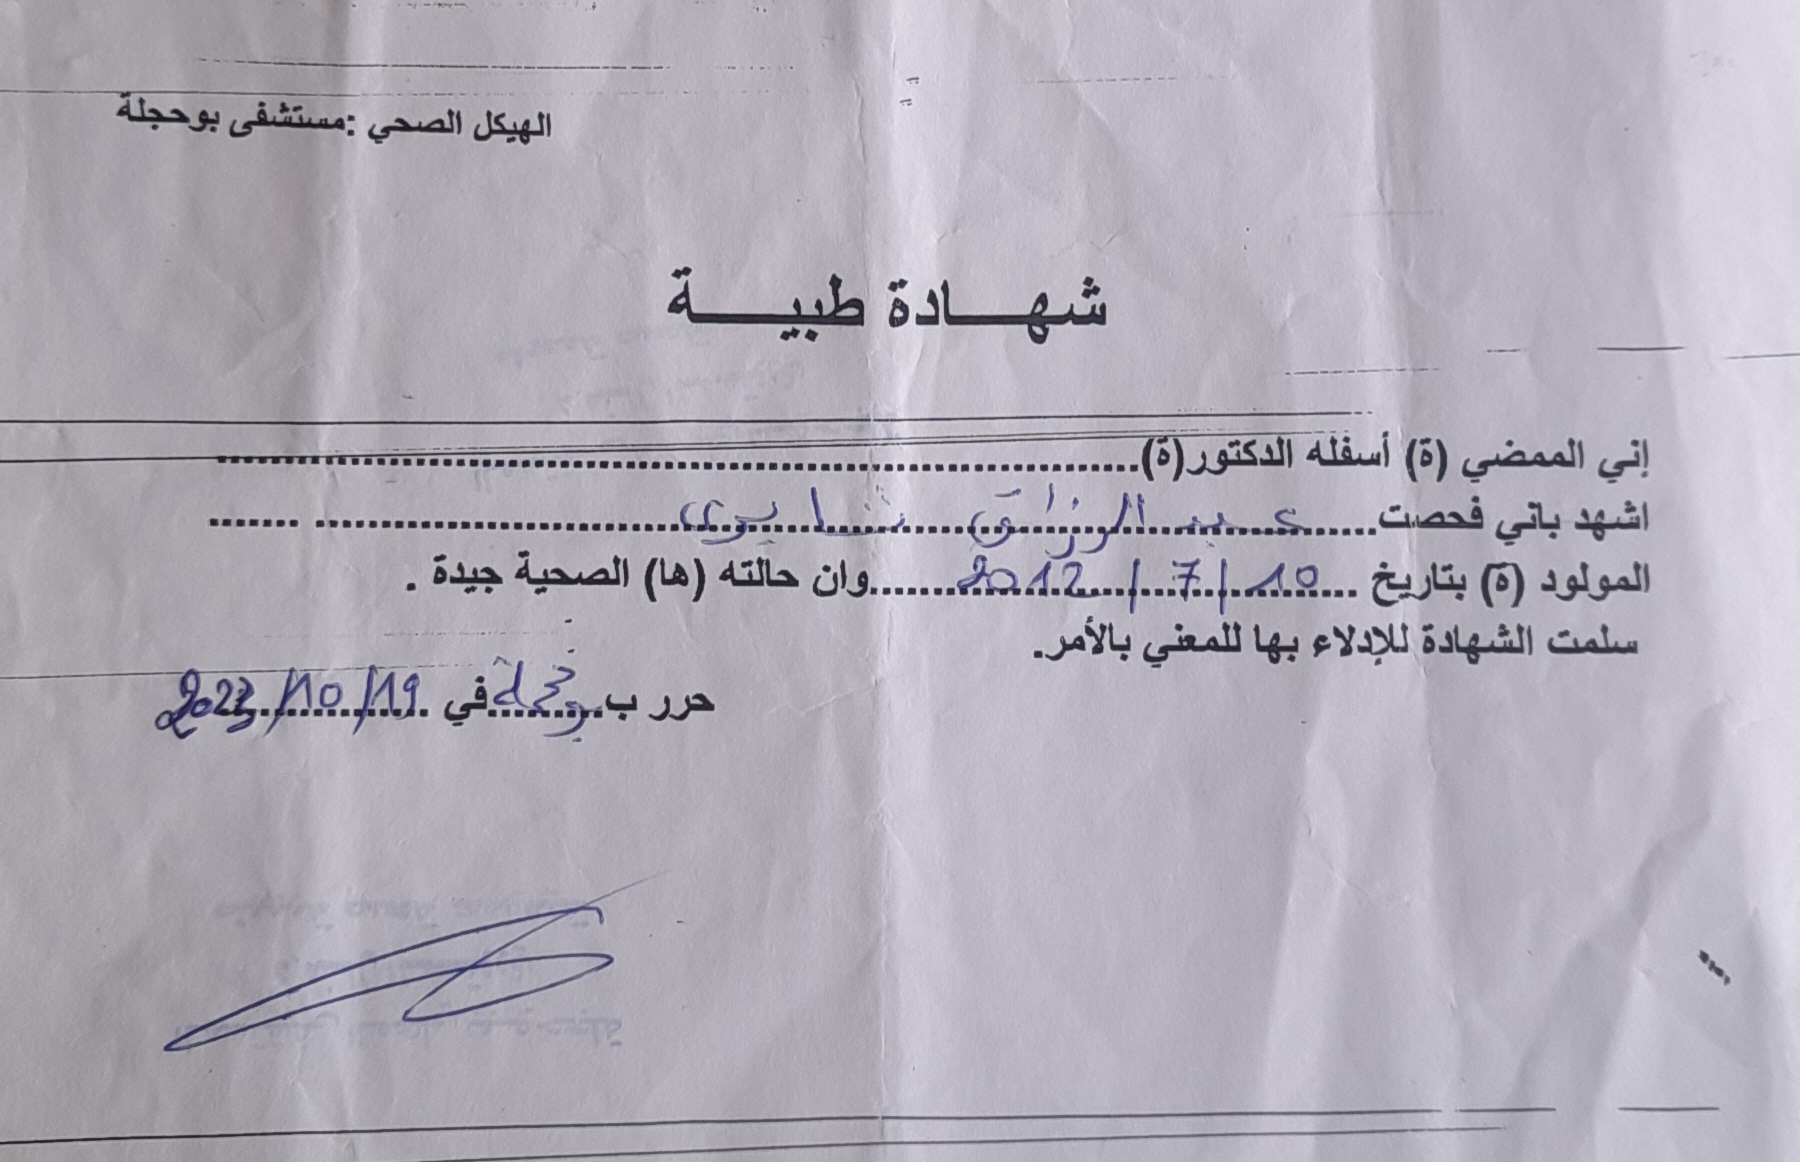 الهيكل الصحي :مستشفى بوحجلة
شهـــادة طبيـــــة
إني الممضي (ة) أسفله الدكتور(ة)..............................
اشهد باني فحصت..... عبد الرزاق شايبي ..............................
المولود (ة) بتاريخ ... 10 / 7 / 2012 ......وان حالته (ها) الصحية جيدة .
سلمت الشهادة للإدلاء بها للمعني بالأمر.
حرر ب بوحجلة في 19 / 10 / 2023